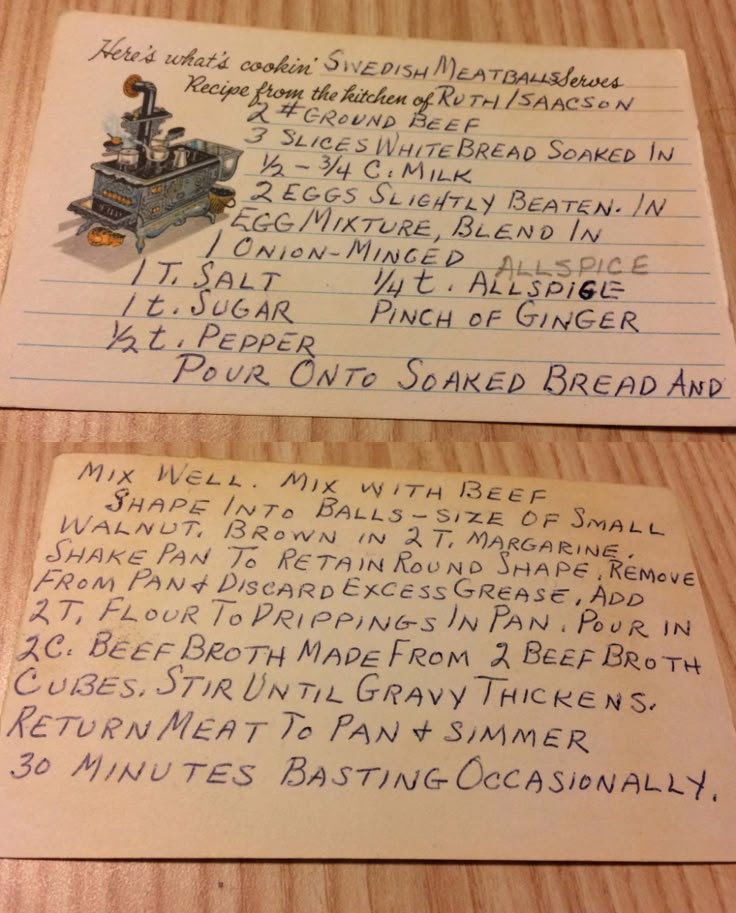 Here's what's cookin' SWEDISH MEATBALLS Serves
Recipe from the kitchen of RUTH ISAACSON
2 # GROUND BEEF
3 SLICES WHITE BREAD SOAKED IN
1/2 - 3/4 C. MILK
2 EGGS SLIGHTLY BEATEN. IN
EGG MIXTURE, BLEND IN
1 ONION-MINCED ALLSPICE
1 T. SALT 1/4 t. ALLSPICE
1 t. SUGAR PINCH OF GINGER
1/2 t. PEPPER
POUR ONTO SOAKED BREAD AND
MIX WELL. MIX WITH BEEF
SHAPE INTO BALLS - SIZE OF SMALL
WALNUT. BROWN IN 2 T. MARGARINE.
SHAKE PAN TO RETAIN ROUND SHAPE. REMOVE
FROM PAN & DISCARD EXCESS GREASE. ADD
2 T. FLOUR TO DRIPPINGS IN PAN. POUR IN
2C. BEEF BROTH MADE FROM 2 BEEF BROTH
CUBES. STIR UNTIL GRAVY THICKENS.
RETURN MEAT TO PAN & SIMMER
30 MINUTES BASTING OCCASIONALLY.